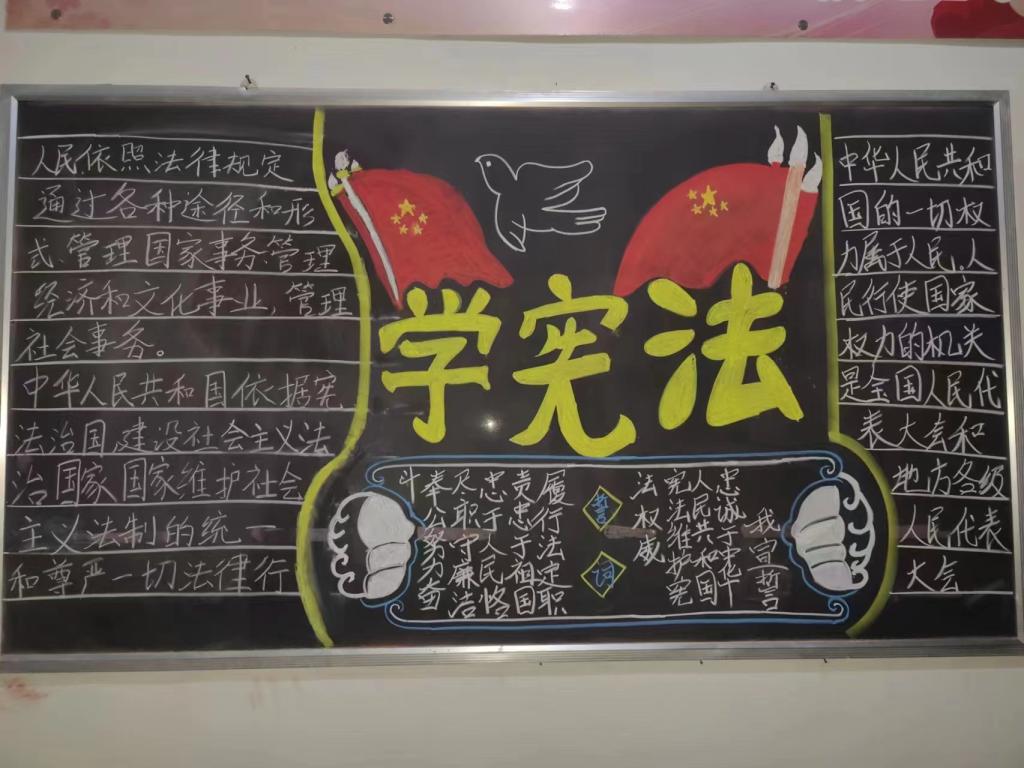 学宪法
人民依照法律规定
通过各种途径和形
式、管理国家事务管理
经济和文化事业，管理
社会事务。
中华人民共和国依据宪
法治国，建设社会主义法
治国家国家维护社会
主义法制的统一
和尊严一切法律行
我宣誓
忠诚于中华
人民共和国
宪法维护宪
法权威
誓词
履行法定职
责忠于祖国
忠于人民恪
尽职守廉洁
奉公努力奋
斗
中华人民共和
国的一切权
力属于人民。人
民行使国家
权力的机关
是全国人民代
表大会和
地方各级
人民代表
大会